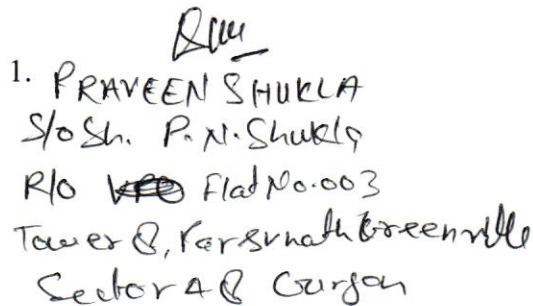 1. PRAVEEN SHUKLA
S/o Sh. P. N. Shukla
R/o Flat No. 003
Tower 8, Parsvnath Greenville
Sector 48 Gurgon